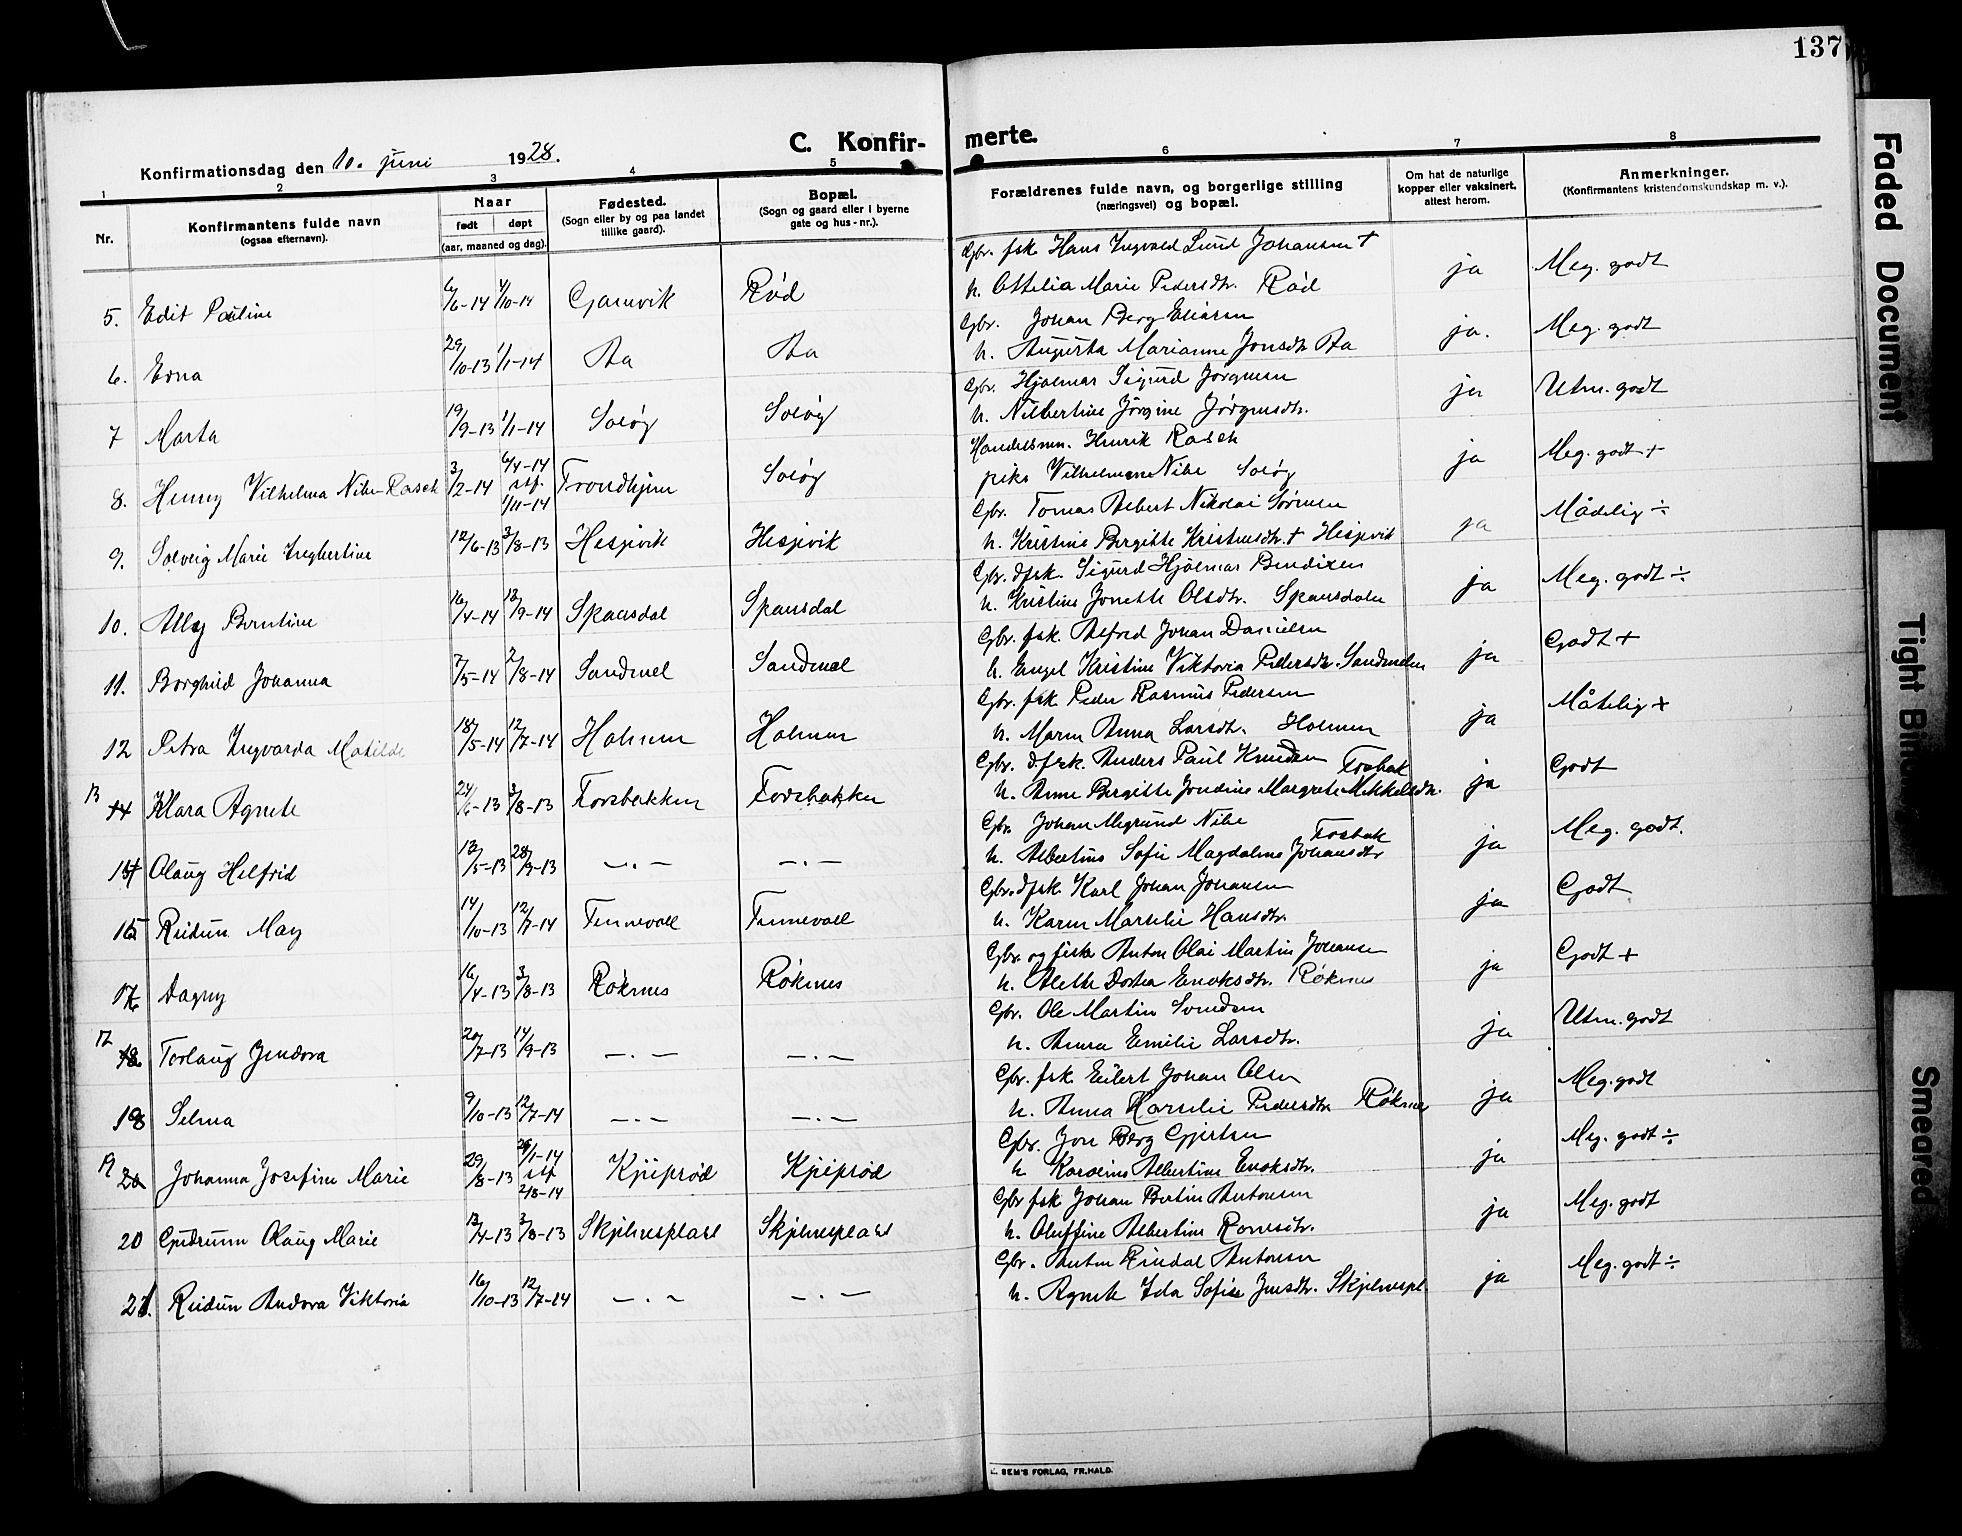 137
Faded Document
Tight Bind
Smeared
C. Konfir- merte.
Konfirmationsdag den 10. juni 1928.
1 2 3 4 5 6 7 8
Nr.
Konfirmantens fulde navn
(ogsaa efternavn).
Naar
født døpt
(aar, maaned og dag).
Fødested.
(Sogn eller by og paa landet
tillike gaard).
Bopæl.
(Sogn og gaard eller i byerne
gate og hus-nr.).
Forældrenes fulde navn, og borgerlige stilling
(næringsvei) og bopæl.
Om hat de naturlige
kopper eller vaksinert,
attest herom.
Anmerkninger.
(Konfirmantens kristendomskundskap m. v.).
Gbr. fsk. Hans Ingvald Lund Johansen +
5. Edit Pauline 6/6-14 4/10-14 Gamvik Rød h. Ottilia Marie Pedersdtr. Rød ja Meg. godt
Gbr. Johan Berg Eliasen
6. Edna 29/10-13 1/1-14 Aa Aa h. Augusta Marianne Jonsdtr. Aa ja. Meg. godt
Gbr. Hjalmar Sigurd Jörgensen
7 Marta 19/9-13 1/1-14 Soløy Soløy h. Nilbertine Jörgine Jörgensdtr. ja Utm. godt
Handelsmn. Henrik Rasch
8. Henny Vilhelma Nibe-Rasch 3/2-14 6/4-14 stf. 1/11-14 Trondhjem Soløy pike Vilhelmine Nibe Soløy ja Meg. godt +
Gbr. Tomas Albert Nikolai Sørensen
9. Solveig Marie Ingbertine 12/6-13 3/8-13 Hesjevik Hesjevik h. Kristine Bergitte Kristensdtr. + Hesjevik ja Mådelig ÷
Gbr. dfsk. Sigurd Hjalmar Bendixen
10. Ally Berntine 16/4-14 13/9-14 Spansdal Spansdal h. Kristine Jonette Olsdtr. Spansdalen ja Meg. godt ÷
Gbr. fsk. Alfred Johan Danielsen
11. Borghild Johanna 7/5-14 2/8-14 Sandmel Sandmel h. Engel Kristine Viktoria Pedersdtr. Sandmelen ja Godt +
Gbr. fsk. Peder Rasmus Pedersen
12 Petra Ingvarda Matilde 18/5-14 12/7-14 Holmen Holmen h. Maren Anna Larsdtr. Holmen ja Måtelig +
Gbr. dfsk. Anders Paul Knudsen Fosbak
13 14 Klara Agnete 24/6-13 3/8-13 Forsbakken Forsbakken h. Anne Bergitte Jondine Margrete Mikkelsdtr. ja Godt
Gbr. Johan Megrund Nibe Fosbak
14 Olaug Helfrid 13/5-13 28/9-13 —.— —.— h. Albertine Sofie Magdalene Johansdtr ja Meg. godt.
Gbr. dfsk. Karl Johan Johansen
15 Reidun May 14/10-13 12/7-14 Tennevoll Tennevoll h. Karen Marselie Hansdtr. ja Godt
Gbr. og fisker Anton Olai Martin Johansen
16 Dagny 16/4-13 3/8-13 Røknes Røknes h. Alette Dortea Enoksdtr. Røknes ja Godt +
Gbr. Ole Martin Svendsen
17 18 Torlaug Jendora 20/7-13 14/9-13 —.— —.— h. Anna Emilie Larsdtr. ja Utm. godt
Gbr. fsk. Eilert Johan Olsen
18 Selma 9/10-13 12/7-14 —.— —.— h. Anna Marselie Pedersdtr. Røknes ja Meg. godt
Gbr. Jon Berg Gjertsen
19 20 Johanna Josefine Marie 29/8-13 29/1-14 stf 2/8-14 Kjeiprød Kjeiprød h Karoline Albertine Enoksdtr. ja Meg. godt ÷
Gbr fsk Johan Bertin Antonsen
20 Gudrunn Olaug Marie 13/4-13 3/8-13 Skjelnesplass Skjelnesplass h. Oluffine Albertine Ronesdtr. ja Meg. godt
Gbr. Anton Rindal Antonsen
21. Reidun Andora Viktoria 16/10-13 12/7-14 —.— —.— h. Agnete Ida Sofie Jensdtr. Skjelnespl. ja Meg. godt ÷
SEM'S FORLAG, FR.HALD.